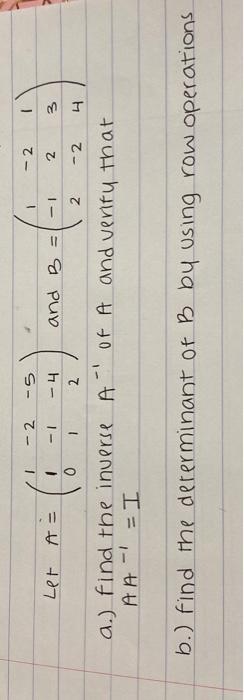 Let A = ( 1 -2 -5 ) and B = ( 1 -2 1 )
1 -1 -4 -1 2 3
0 1 2 2 -2 4
a.) find the inverse A⁻¹ of A and verify that
AA⁻¹ = I
b.) find the determinant of B by using row operations